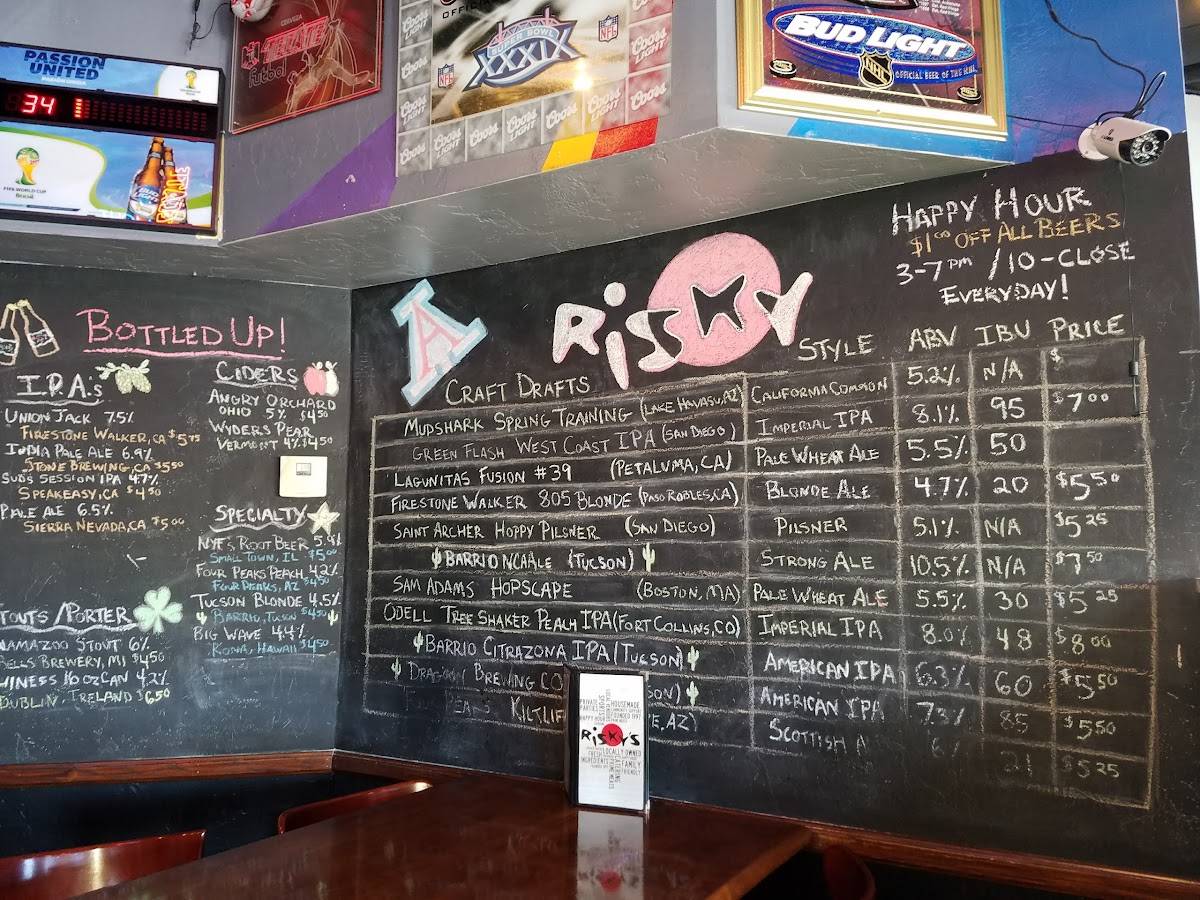 PASSION
UNITED
34 1
FIFA WORLD CUP
Brasil
CERVEZA
TECATE
futbol
OFFICIAL
SUPER BOWL
XXXIX
NFL
NFL
Coors
LIGHT
BUD LIGHT
NHL
OFFICIAL BEER OF THE NHL
HAPPY HOUR
$1.00 OFF ALL BEERS
3-7 PM / 10-CLOSE
EVERYDAY!
BOTTLED UP!
I.P.A.'s
UNION JACK 7.5%
FIRESTONE WALKER, CA $5.75
INDIA PALE ALE 6.9%
STONE BREWING, CA $5.50
SUDS SESSION IPA 4.7%
SPEAKEASY, CA $4.50
PALE ALE 6.5%
SIERRA NEVADA, CA $5.00
TOUTS/PORTER
AMAZOO STOUT 6%
BELLS BREWERY, MI $4.50
INESS 16 OZ CAN 4.2%
DUBLIN, IRELAND $6.50
CIDERS
ANGRY ORCHARD
OHIO 5% $4.50
WYDERS PEAR
VERMONT 4% $4.50
SPECIALTY
NYF'S ROOT BEER 5.9%
SMALL TOWN, IL $5.00
FOUR PEAKS PEACH 4.2%
FOUR PEAKS, AZ $4.50
TUCSON BLONDE 4.5%
BARRIO, TUCSON $4.50
BIG WAVE 4.4%
KONA, HAWAII $4.50
A
RiSKY
CRAFT DRAFTS STYLE ABV IBU PRICE
MUDSHARK SPRING TRAINING (LAKE HAVASU, AZ) CALIFORNIA COMMON 5.2% N/A $
GREEN FLASH WEST COAST IPA (SAN DIEGO) IMPERIAL IPA 8.1% 95 $7.00
LAGUNITAS FUSION #39 (PETALUMA, CA) PALE WHEAT ALE 5.5% 50
FIRESTONE WALKER 805 BLONDE (PASO ROBLES, CA) BLONDE ALE 4.7% 20 $5.50
SAINT ARCHER HOPPY PILSNER (SAN DIEGO) PILSNER 5.1% N/A $5.25
BARRIO NCAALE (TUCSON) STRONG ALE 10.5% N/A $7.50
SAM ADAMS HOPSCAPE (BOSTON, MA) PALE WHEAT ALE 5.5% 30 $5.25
ODELL TREE SHAKER PEACH IPA (FORT COLLINS, CO) IMPERIAL IPA 8.0% 48 $8.00
BARRIO CITRAZONA IPA (TUCSON) AMERICAN IPA 6.3% 60 $5.50
DRAGOON BREWING CO SON) AMERICAN IPA 7.3% 85 $5.50
KILTLIF E, AZ) SCOTTISH A 6% 21 $5.25
PRIVATE
PARTIES
SPORTS
HOUSEMADE
COMMUNITY SUPPORT
FOUNDED 1997
HAPPY HOUR
RiSKY'S
LOCALLY OWNED
FRESH
INGREDIENTS
CATERING
FAMILY
FRIENDLY